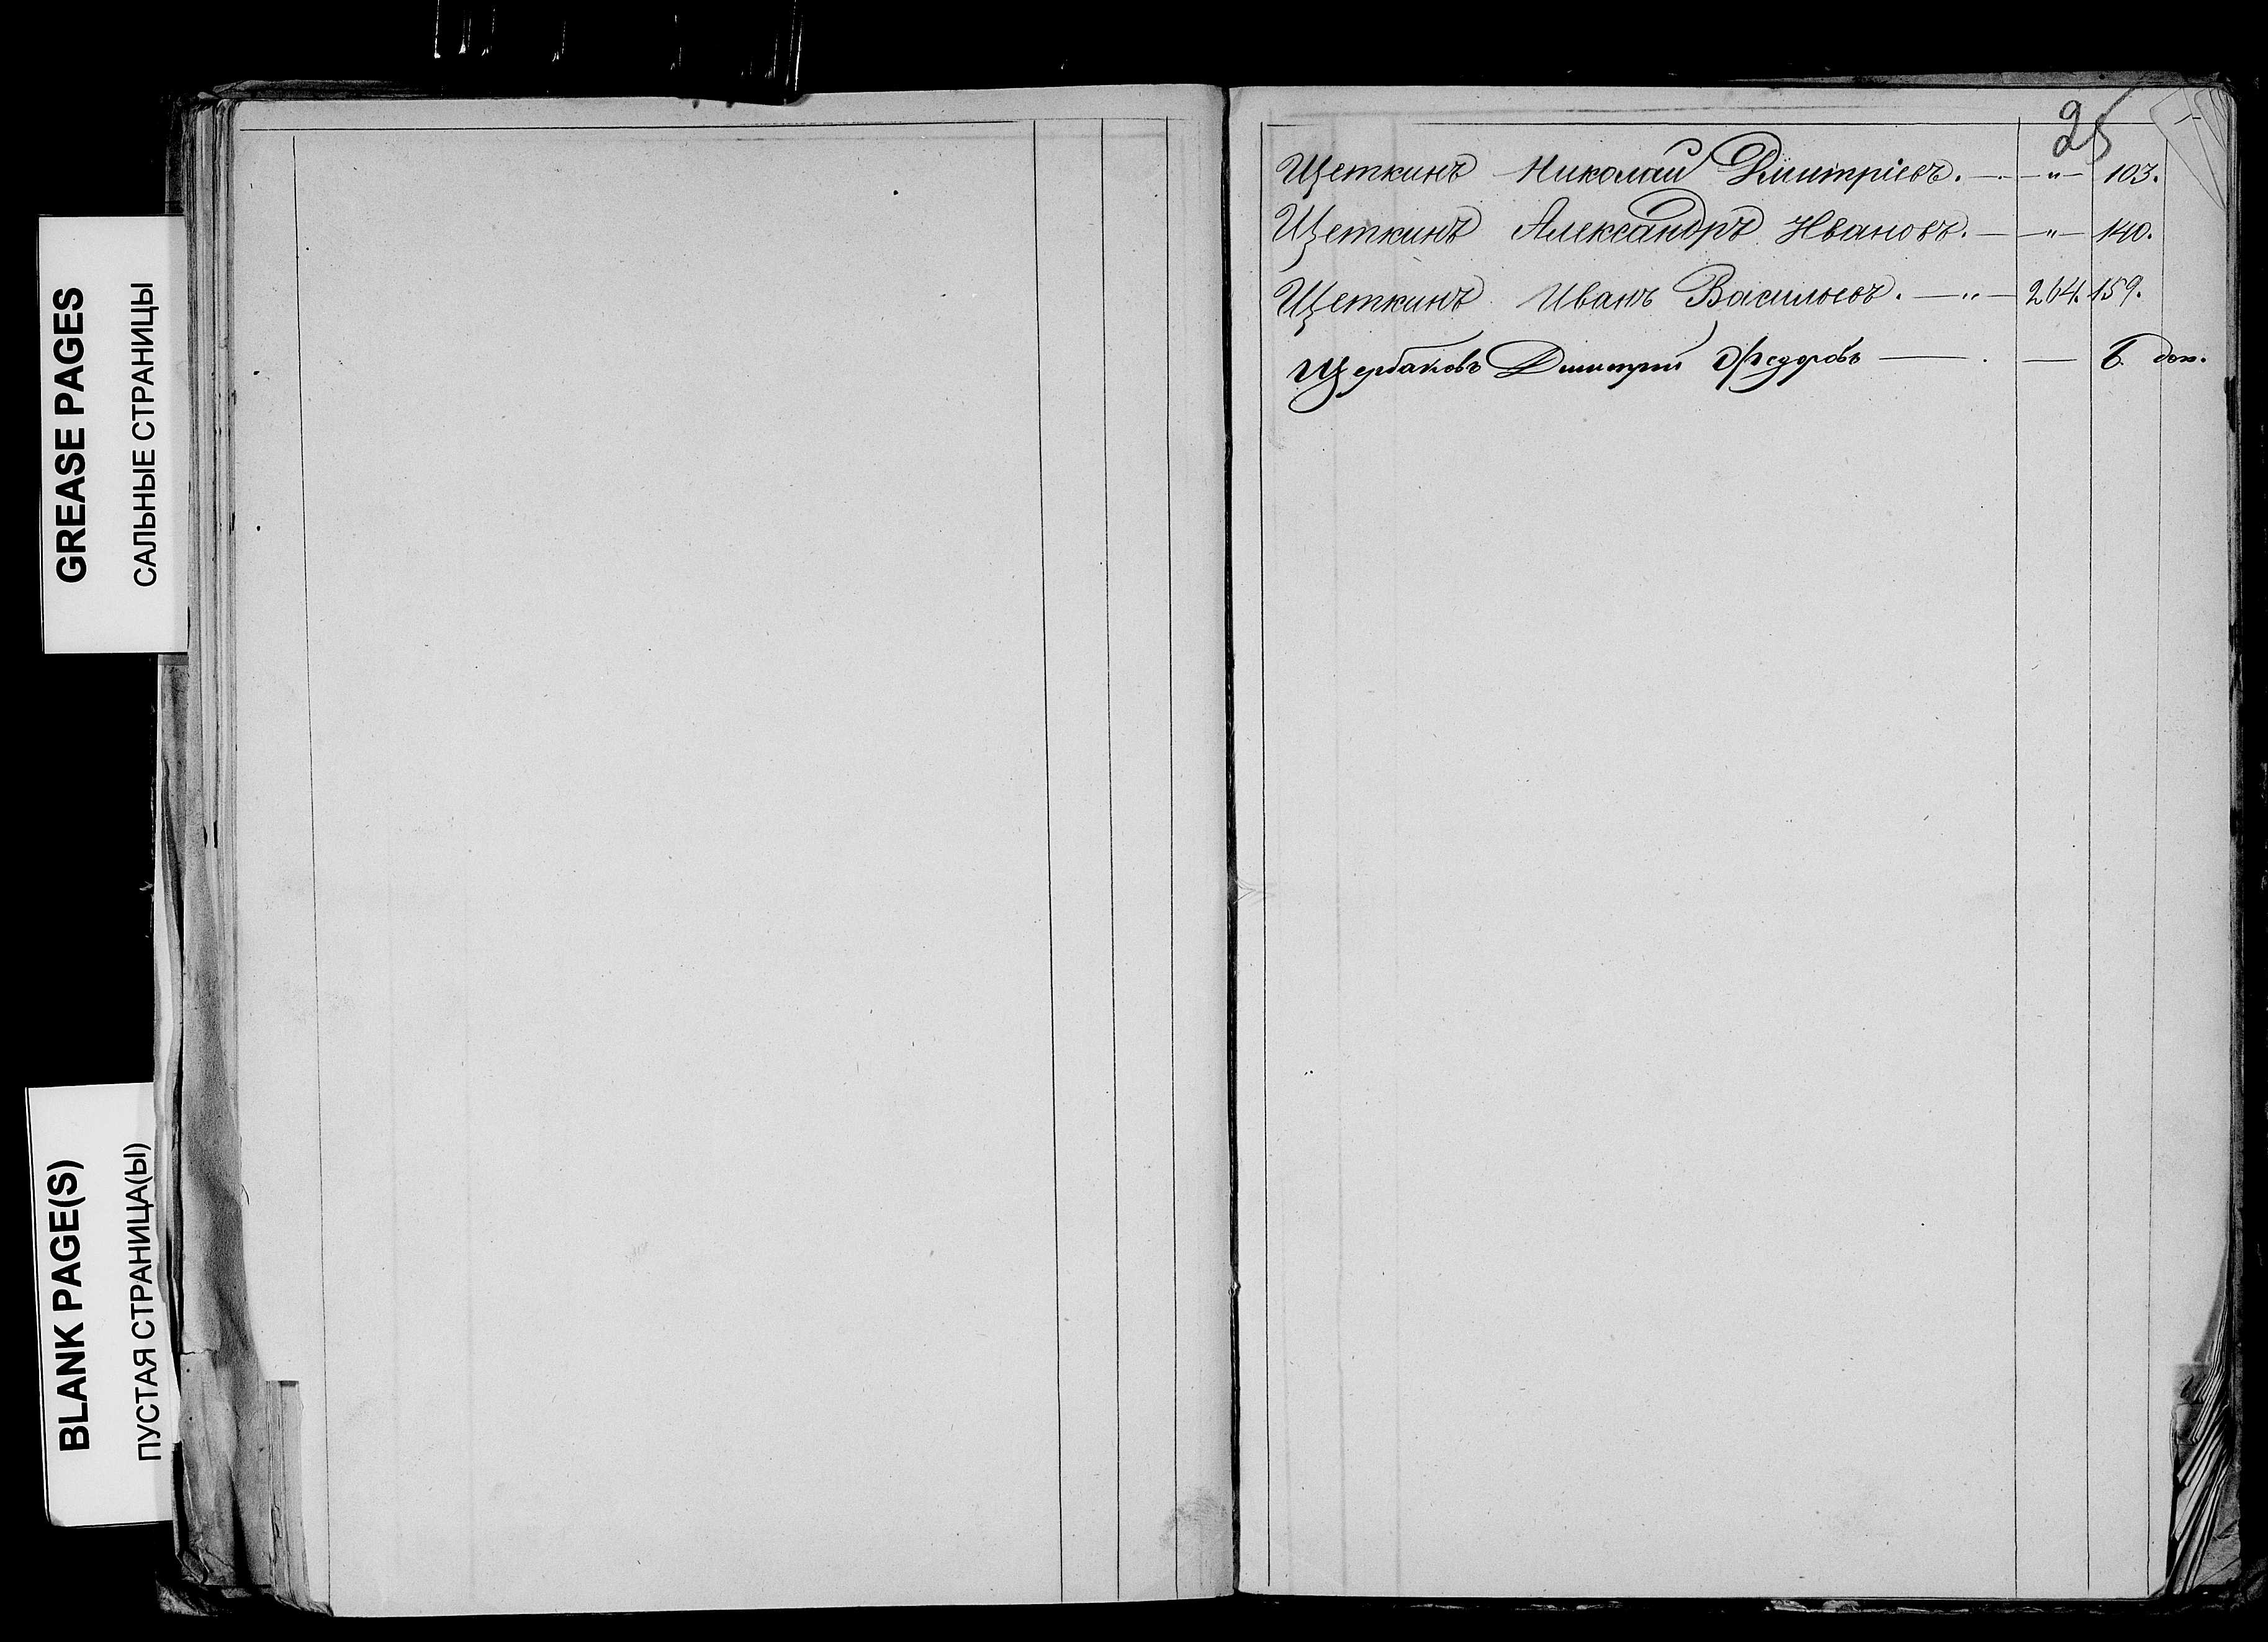 GREASE PAGES
САЛЬНЫЕ СТРАНИЦЫ
BLANK PAGE(S)
ПУСТАЯ СТРАНИЦА(Ы)
25
Щеткинъ Николай Дмитріевъ. — " — 103.
Щеткинъ Александръ Ивановъ. — " — 140.
Щеткинъ Иванъ Васильевъ. — " — 264. 159.
Щербаковъ Димитрий Федоровъ — . — 6. доп.